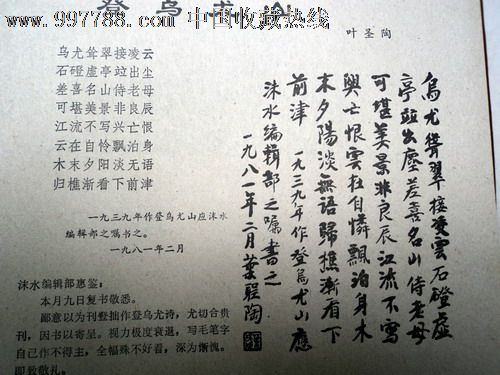 www.997788.com 中国收藏热线
登乌尤山
叶圣陶
乌尤耸翠接凌云
石磴虚亭竝出尘
差喜名山侍老母
可堪美景非良辰
江流不写兴亡恨
云在自怜飘泊身
木末夕阳淡无语
归樵渐看下前津
一九三九年作登乌尤山应沫水
编辑部之嘱书之。
一九八一年二月
沫水编辑部惠鉴：
本月九日复书敬悉。
鄙意以为刊登拙作登乌尤诗，尤切合贵
刊，因书以寄呈。视力极度衰退，写毛笔字
自己作不得主，全幅殊不好看，深为惭愧。
即致敬礼。
烏尤聳翠接凌雲石磴虛
亭竝出塵差喜名山侍老母
可堪美景非良辰江流不寫
興亡恨雲在自憐飄泊身木
末夕陽淡無語歸樵漸看下
前津 一九三九年作登烏尤山應
沫水編輯部之囑書之
一九八一年二月葉聖陶